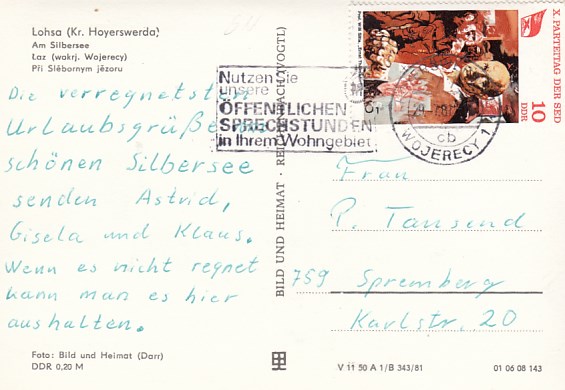 Lohsa (Kr. Hoyerswerda)
Am Silbersee
Łaz (wokrj. Wojerecy)
Při Slěbornym jězoru
Die verregnetsten
Urlaubsgrüße vom
schönen Silbersee
senden Astrid,
Gisela und Klaus.
Wenn es nicht regnet
kann man es hier
aushalten.
Foto: Bild und Heimat (Darr)
DDR 0,20 M
BILD UND HEIMAT · REICHENBACH (VOGTL)
Nutzen Sie
unsere
ÖFFENTLICHEN
SPRECHSTUNDEN
in Ihrem Wohngebiet
cb
WOJERECY 1
X. PARTEITAG DER SED
10
DDR
Frau
P. Tausend
759 Spremberg
Karlstr. 20
V 11 50 A 1/B 343/81
01 06 08 143